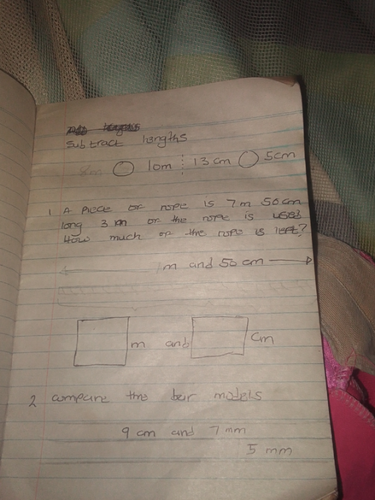 Subtract lengths
8m ◯ 10m 13cm ◯ 5cm
1. A piece of rope is 7m 50cm
long 3 m of the rope is used
How much of the rope is left?
m and 50 cm
m and cm
2 compare the bar models
9 cm and 7 mm
5 mm